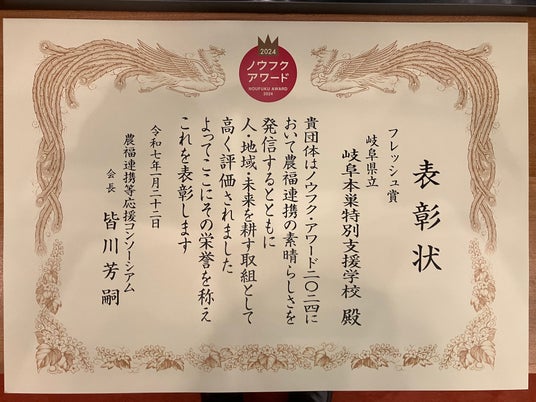 2024
ノウフク
アワード
NOUFUKU AWARD
2024
表彰状
フレッシュ賞
岐阜県立
岐阜本巣特別支援学校 殿
貴団体はノウフク・アワード二〇二四に
おいて農福連携の素晴らしさを
発信するとともに
人・地域・未来を耕す取組として
高く評価されました
よってここにその栄誉を称え
これを表彰します
令和七年一月二十二日
農福連携等応援コンソーシアム
会長 皆川芳嗣